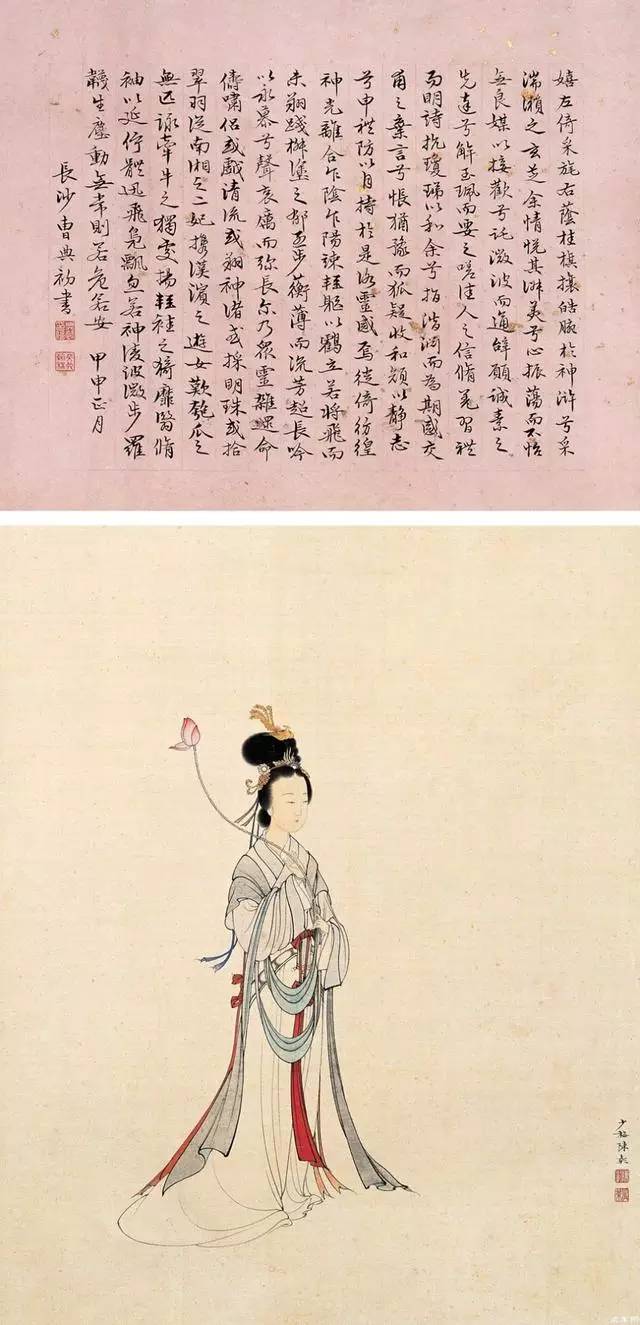 嬉左倚采旄右蔭桂旗攘皓腕於神滸兮采
湍瀨之玄芝余情悅其淑美兮心振蕩而不怡
無良媒以接歡兮託微波而通辭願誠素之
先達兮解玉珮而要之嗟佳人之信脩羌習禮
而明詩抗瓊珶以和余兮指潛淵而為期感交
甫之棄言兮悵猶豫而狐疑收和顏以靜志
兮申禮防以自持於是洛靈感焉徙倚彷徨
神光離合乍陰乍陽竦輕軀以鶴立若將飛而
未翔踐椒塗之郁烈步蘅薄而流芳超長吟
以永慕兮聲哀厲而彌長爾乃眾靈雜遝命
儔嘯侶或戲清流或翔神渚或採明珠或拾
翠羽從南湘之二妃攜漢濱之遊女歎匏瓜之
無匹詠牽牛之獨處揚輕袿之猗靡翳脩
袖以延佇體迅飛鳧飄忽若神凌波微步羅
韈生塵動無常則若危若安 甲申正月
長沙曹典初書
少梅陳